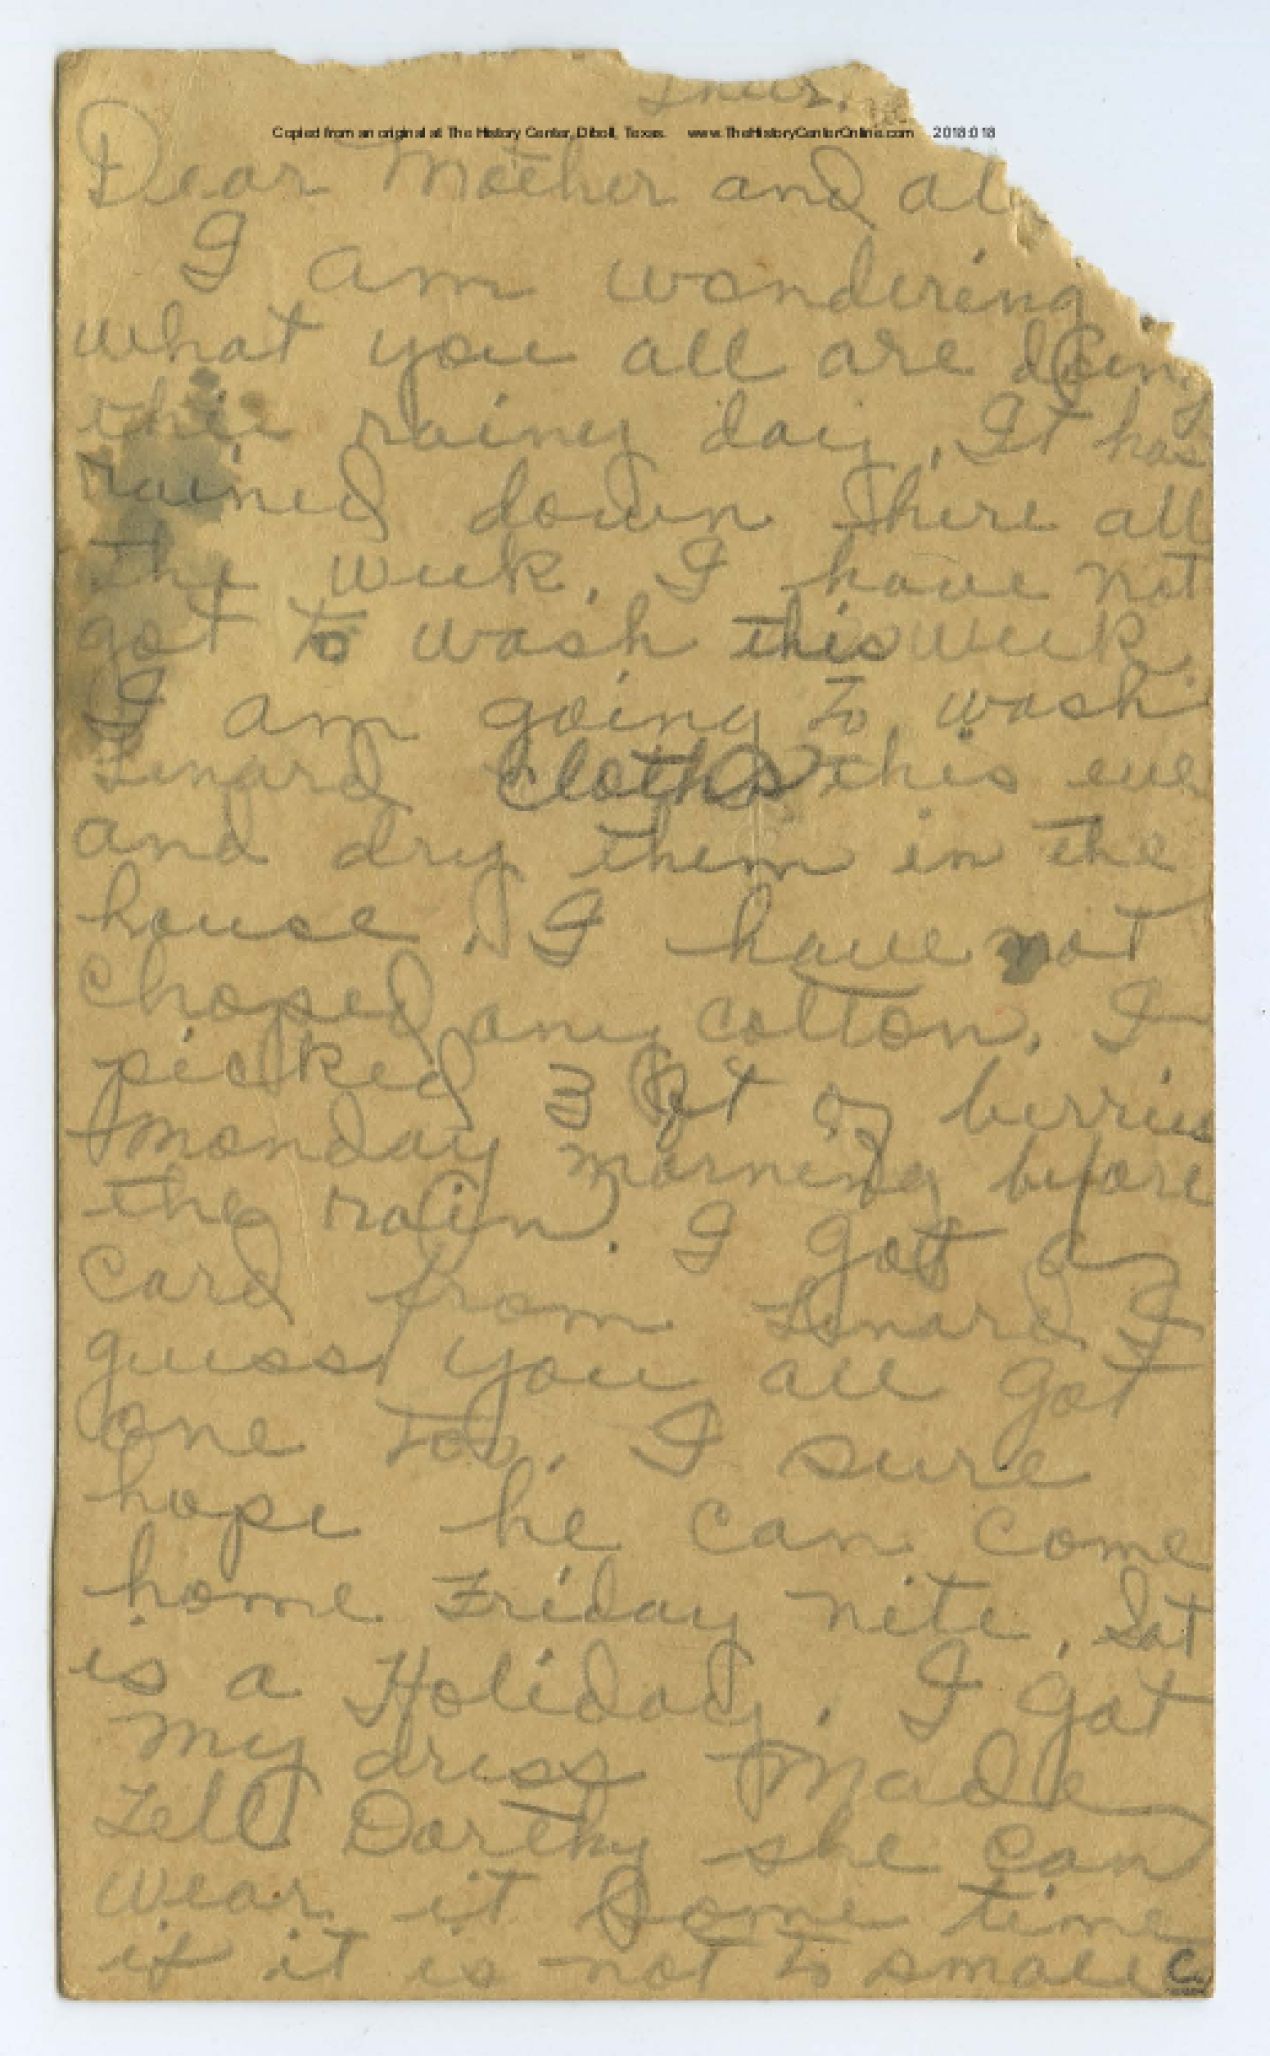 Thur.
Copied from an original at The History Center, Diboll, Texas. www.TheHistoryCenterOnline.com 2018:018
Dear Mother and all
I am wondering
what you all are doing
this rainy day. It has
rained down there all
the week. I have not
got to wash this week.
I am going to wash
Lenard cloths this eve
and dry them in the
house. I have not
choped any cotton. I
picked 3 qt of berries
Monday morning before
the rain. I got a
card from Lenard I
guess you all got
one too. I sure
hope he can come
home Friday nite. Sat
is a Holiday. I got
my dress made
Tell Dorthy she can
wear it some time
if it is not to small